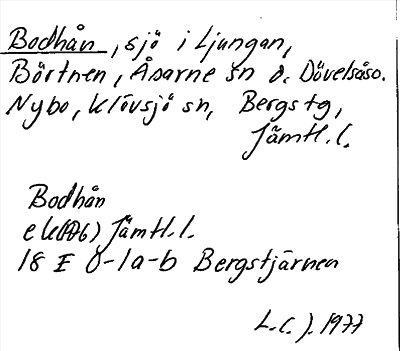 Bodhån, sjö i Ljungan,
Börtnen, Åsarne sn o. Dövelsåso.
Nybo, Klövsjö sn, Bergs tg,
Jämtl.l.
Bodhån
ek(06) Jämtl.l.
18 E 0-1a-b Bergstjärnen
L.C.J. 1977